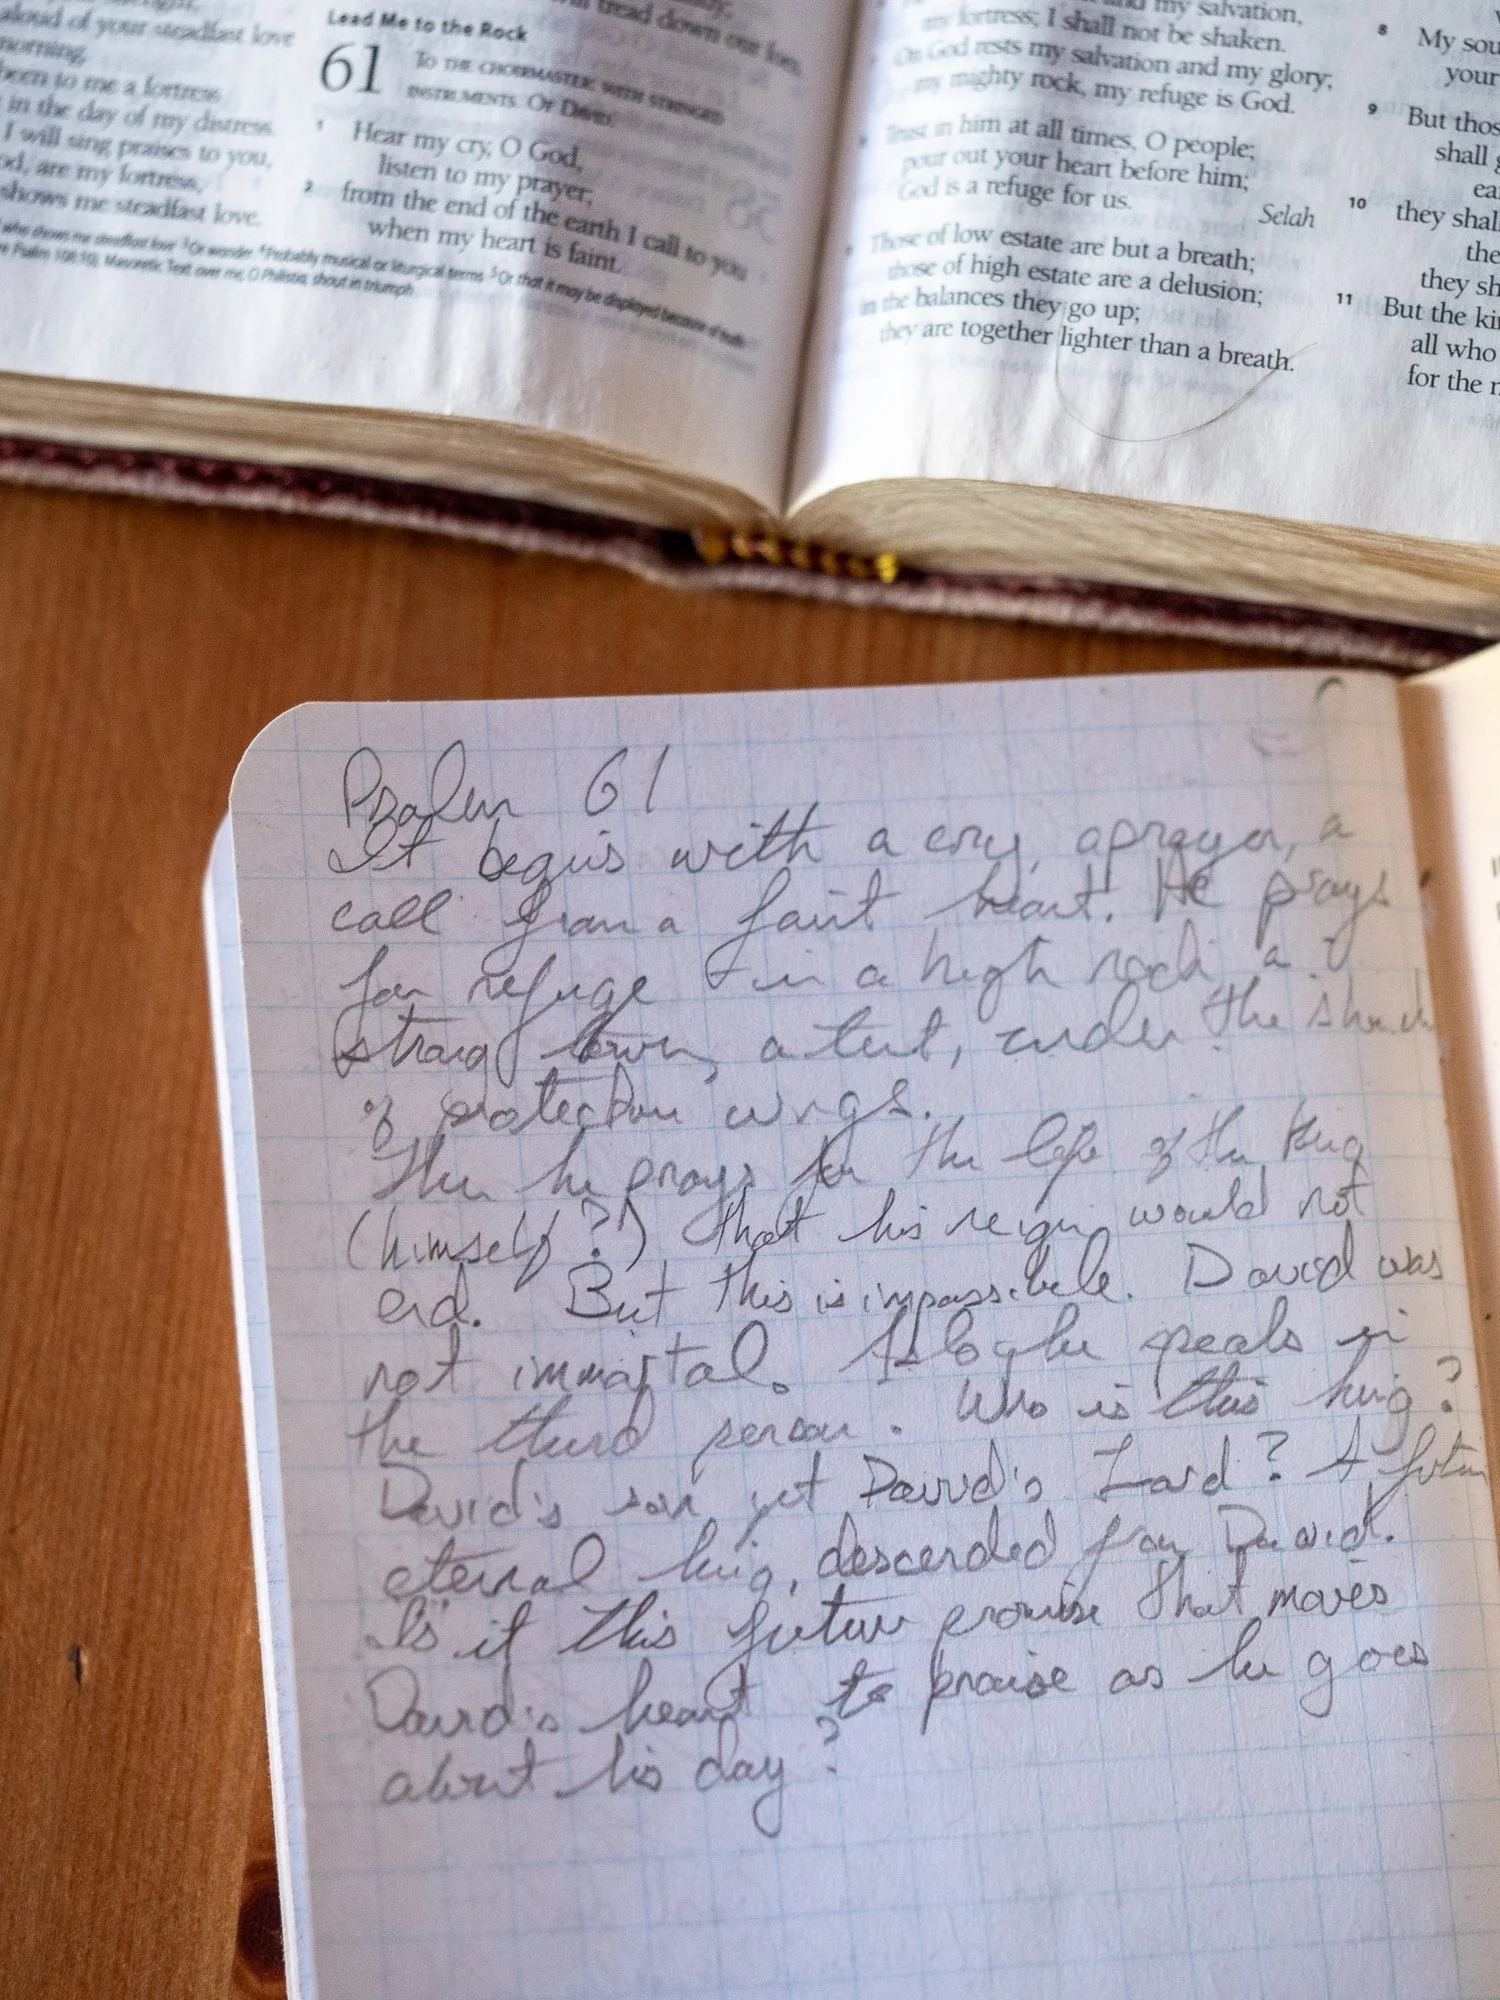 aloud of your steadfast love
morning,
been to me a fortress
in the day of my distress.
I will sing praises to you,
are my fortress,
shows me steadfast love.
Lead Me to the Rock
61 To the choirmaster: with stringed
instruments. Of David.
1 Hear my cry, O God,
listen to my prayer;
2 from the end of the earth I call to you
when my heart is faint.
tread down our foes.
my salvation,
my fortress; I shall not be shaken.
On God rests my salvation and my glory;
my mighty rock, my refuge is God.
Trust in him at all times, O people;
pour out your heart before him;
God is a refuge for us. Selah
Those of low estate are but a breath;
those of high estate are a delusion;
in the balances they go up;
they are together lighter than a breath.
8 My sou
your
9 But thos
shall g
ea
10 they shal
the
they sh
11 But the ki
all who
for the
Psalm 61
It begins with a cry, a prayer, a
call from a faint heart. He prays
for refuge in a high rock a
strong tower, a tent, under the
of protection wings.
Then he prays for the life of the King
(himself?) that his reign would not
end. But this is impossible. David was
not immortal. Also he speaks in
the third person. Who is this king?
David's son yet David's Lord? A future
eternal king, descended from David.
Is it this future promise that moves
David's heart to praise as he goes
about his day?